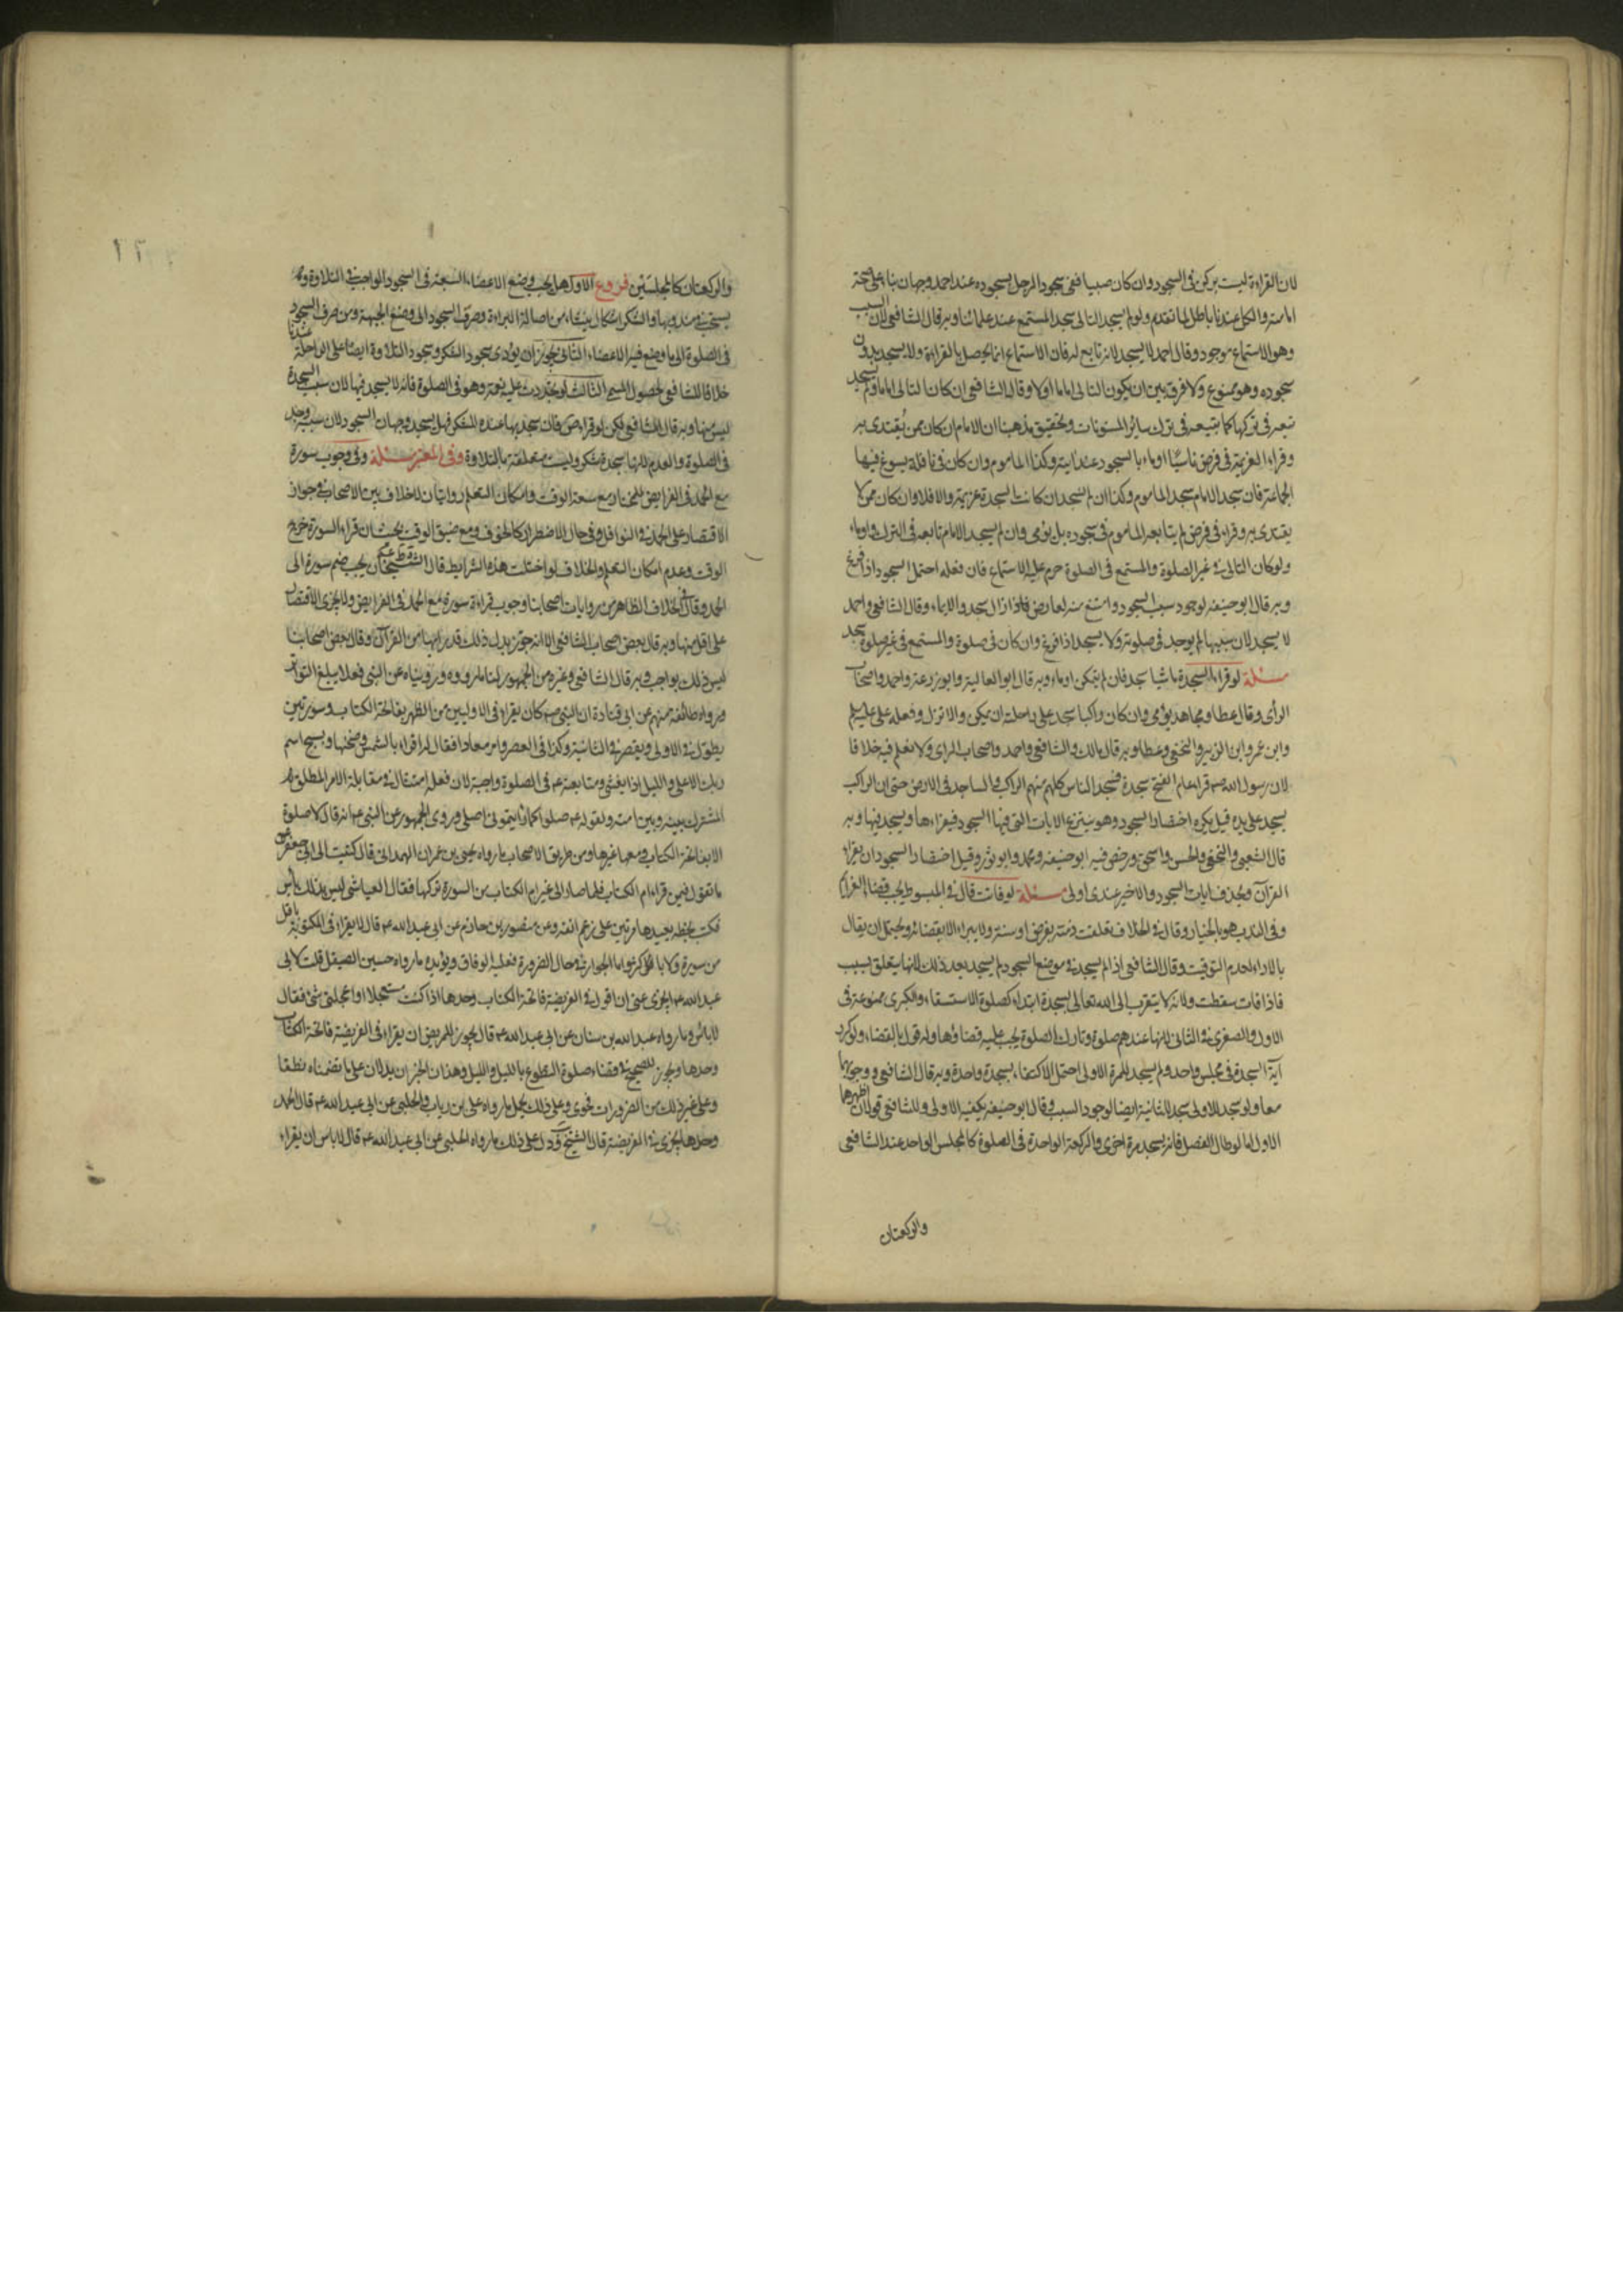 لان القراءة ليست بركن في السجود وان كان صبيا ففي سجود الرجل بسجوده عند احمد وجهان بناء على صحة
امامته والكل عندنا باطل لما تقدم ولو لم يسجد التالي سجد المستمع عند علمائنا وبه قال الشافعي لان السبب
وهو الاستماع موجود وقال احمد لا يسجد لانه تابع له فان الاستماع انما يحصل بالقراءة ولا يسجد بدون
سجوده وهو ممنوع ولا فرق بين ان يكون التالي اماما اولا وقال الشافعي ان كان التالي اماما ولم يسجد
تبعه في تركها كما يتبعه في ترك سائر المسنونات وتحقيق مذهبنا ان الامام ان كان ممن يُقتدى به
وقراء العزيمة في فرض ناسيًا اوماء بالسجود عندايته وكذا الماموم وان كان في نافلة يسوغ فيها
الجماعة فان سجد الامام سجد الماموم وكذا ان لم يسجد ان كانت السجدة عزيمة والا فلا وان كان ممن لا
يقتدى به وقراء في فرض لم يتابعه الماموم في سجوده بل يؤمي وان لم يسجد الامام تابعه في الترك واوماء
ولو كان التالي في غير الصلوة والمستمع في الصلوة حرم عليه الاستماع فان فعله احتمل السجود اذا فرغ
وبه قال ابو حنيفه لوجود سبب السجود وامتنع منه لعارض فاذا زال سجد والايماء وقال الشافعي واحمد
لا يسجد لان سببها لم يوجد في صلوته ولا يسجد اذا فرغ وان كان في صلوة والمستمع في غير صلوة سجد
مسئلة لو قراء السجدة ماشيا سجد فان لم يتمكن اوماء وبه قال ابو العالية وابو زرعة واحمد واصحاب
الرأى وقال عطا ومجاهد يؤمي وان كان راكبا سجد على راحلته ان تمكن والا نزل وفعله علي عليه السلم
وابن عمر وابن الزبير والنخعي وعطا وبه قال مالك والشافعي واحمد واصحاب الراى ولا نعلم فيه خلافا
لان رسول الله ص قراء عام الفتح سجدة فسجد الناس كلهم منهم الراكب والساجد في الارض حتى ان الراكب
يسجد على يده قيل يكره اختصار السجود وهو ينتزع الايات التي فيها السجود فيقراءها ويسجد فيها وبه
قال الشعبي والنخعي والحسن واسحق ورخص فيه ابو حنيفه ومحمد وابو ثور وقيل اختصار السجود ان يقراء
القرآن ويحذف ايات السجود والاخير عندى اولى مسئلة لو فاتت قال في المبسوط يجب قضاء العزائم
وفي الندب هو بالخيار وقال في الخلاف تعلقت ذمته بفرض او سنة ولا يبراء الا بقضائه ويحتمل ان يقال
بالاداء لعدم التوقيت وقال الشافعي اذا لم يسجد في موضع السجود لم يسجد بعد ذلك لانها يتعلق بسبب
فاذا فات سقطت ولانه لا يتقرب الى الله تعالى بسجدة ابتداء كصلوة الاستسقاء والكبرى ممنوعة في
الاول والصغرى في الثاني لانها عندهم صلوة وتارك الصلوة يجب عليه قضاؤها وله قول بالقضاء ولو كرر
آية السجدة في مجلس واحد ولم يسجد للمرة الاولى احتمل الاكتفاء بسجدة واحدة وبه قال الشافعي ووجوبهما
معا ولو سجد للاولى سجد للثانية ايضا لوجود السبب وقال ابو حنيفه يكفيه الاولى وللشافعي قولان اظهرهما
الاول اما لو طال الفصل فانه يسجد مرة اخرى والركعة الواحدة في الصلوة كالمجلس الواحد عند الشافعي
والركعتان
والركعتان كالمجلسَين فروع الاول هل يجب وضع الاعضاء السبعة في السجود الواجب في التلاوة وهل
يستحب في مندوبها والشكر اشكال ينشاء من اصالة البراءة وصرف السجود الى وضع الجبهة ومن صرف السجود
في الصلوة الى ما وضع فيه الاعضاء الثاني يجوز ان يؤدى سجود الشكر وسجود التلاوة ايضا على الراحلة عندنا
خلافا للشافعي لحصول المسمى الثالث لو تجددت عليه نعمة وهو في الصلوة فانه لا يسجد فيها لان سبب السجدة
ليس منها وبه قال الشافعي لكن لو قراء ص فانه سجد بها عنده للشكر فهل يسجد وجهان السجود لان سببه وجد
في الصلوة والعدم لانها سجدة شكر وليست متعلقة بالتلاوة وفي المعتبر مسئلة وفي وجوب سورة
مع الحمد في الفرايض للمختار مع سعة الوقت وامكان التعلم روايتان لاخلاف بين الاصحاب في جواز
الاقتصار على الحمد في النوافل وفي حال الاضطرار كالخوف ومع ضيق الوقت بحيث ان قراء السورة خرج
الوقت وعدم امكان التعلم والخلاف لو اختلت هذه الشرايط قال الشيخان يجب ضم سورة الى
الحمد وقال في الخلاف الظاهر من روايات اصحابنا وجوب قراءة سورة مع الحمد في الفرايض ولا يجزى الاقتصار
على اقل منها وبه قال بعض اصحاب الشافعي الا انه جوز بدل ذلك قدر ايها من القرآن وقال بعض اصحابنا
ليس ذلك بواجب وبه قال الشافعي وغيره من الجمهور لنا ما رووه ورويناه عن النبي فعلا يبلغ التواتر
ورواه طائفة منهم عن ابي قتادة ان النبي ص كان يقراء في الاوليين من الظهر بفاتحة الكتاب وسورتين
يطول في الاولى ويقصر في الثانية وكذا في العصر وامر معاذا فقال له اقراء بالشمس وضحيها وسبح اسم
ربك الاعلى والليل اذا يغشى ومتابعته ع في الصلوة واجبة لان فعله امتثال في مقابلة الامر المطلق
المشترك بينه وبين امته ولقوله ع صلوا كما رأيتموني اصلي وروى الجمهور عن النبي ع انه قال لا صلوة
الا بفاتحة الكتاب ومعها غيرها ومن طريق الاصحاب ما رواه يحيى بن عمران الهمداني قال كتبت الى ابي جعفر ع
ما تقول فيمن قراء ام الكتاب فلما صار الى غير ام الكتاب من السورة تركها فقال العياشي ليس بذلك بأس
فكتب بخطه يعيدها مرتين على رغم انفه وعن منصور بن حازم عن ابي عبد الله ع قال لا يقراء في المكتوبة باقل
من سورة ولا باكثر واما الجواز في حال الضرورة فعليه الوفاق ويؤيده ما رواه حسين الصيقل قلت لابي
عبد الله ع ايجزى عني ان اقول في الفريضة فاتحة الكتاب وحدها اذا كنت مستعجلا او اعجلني شئ فقال
لا بأس وما رواه عبد الله بن سنان عن ابي عبد الله ع قال يجوز للمريض ان يقراء في الفريضة فاتحة الكتاب
وحدها ويجوز للصحيح في قضاء صلوة التطوع بالليل والليل وهذان الخبران يدلان على ما تضمناه نطقا
وعلى غير ذلك من الضرورات فحوى وعلى ذلك يحمل ما رواه علي بن رياب والحلبي عن ابي عبد الله ع قال الحمد
وحدها يجزى في الفريضة قال الشيخ ودل على ذلك ما رواه الحلبي عن ابي عبد الله ع قال لا باس ان يقراء